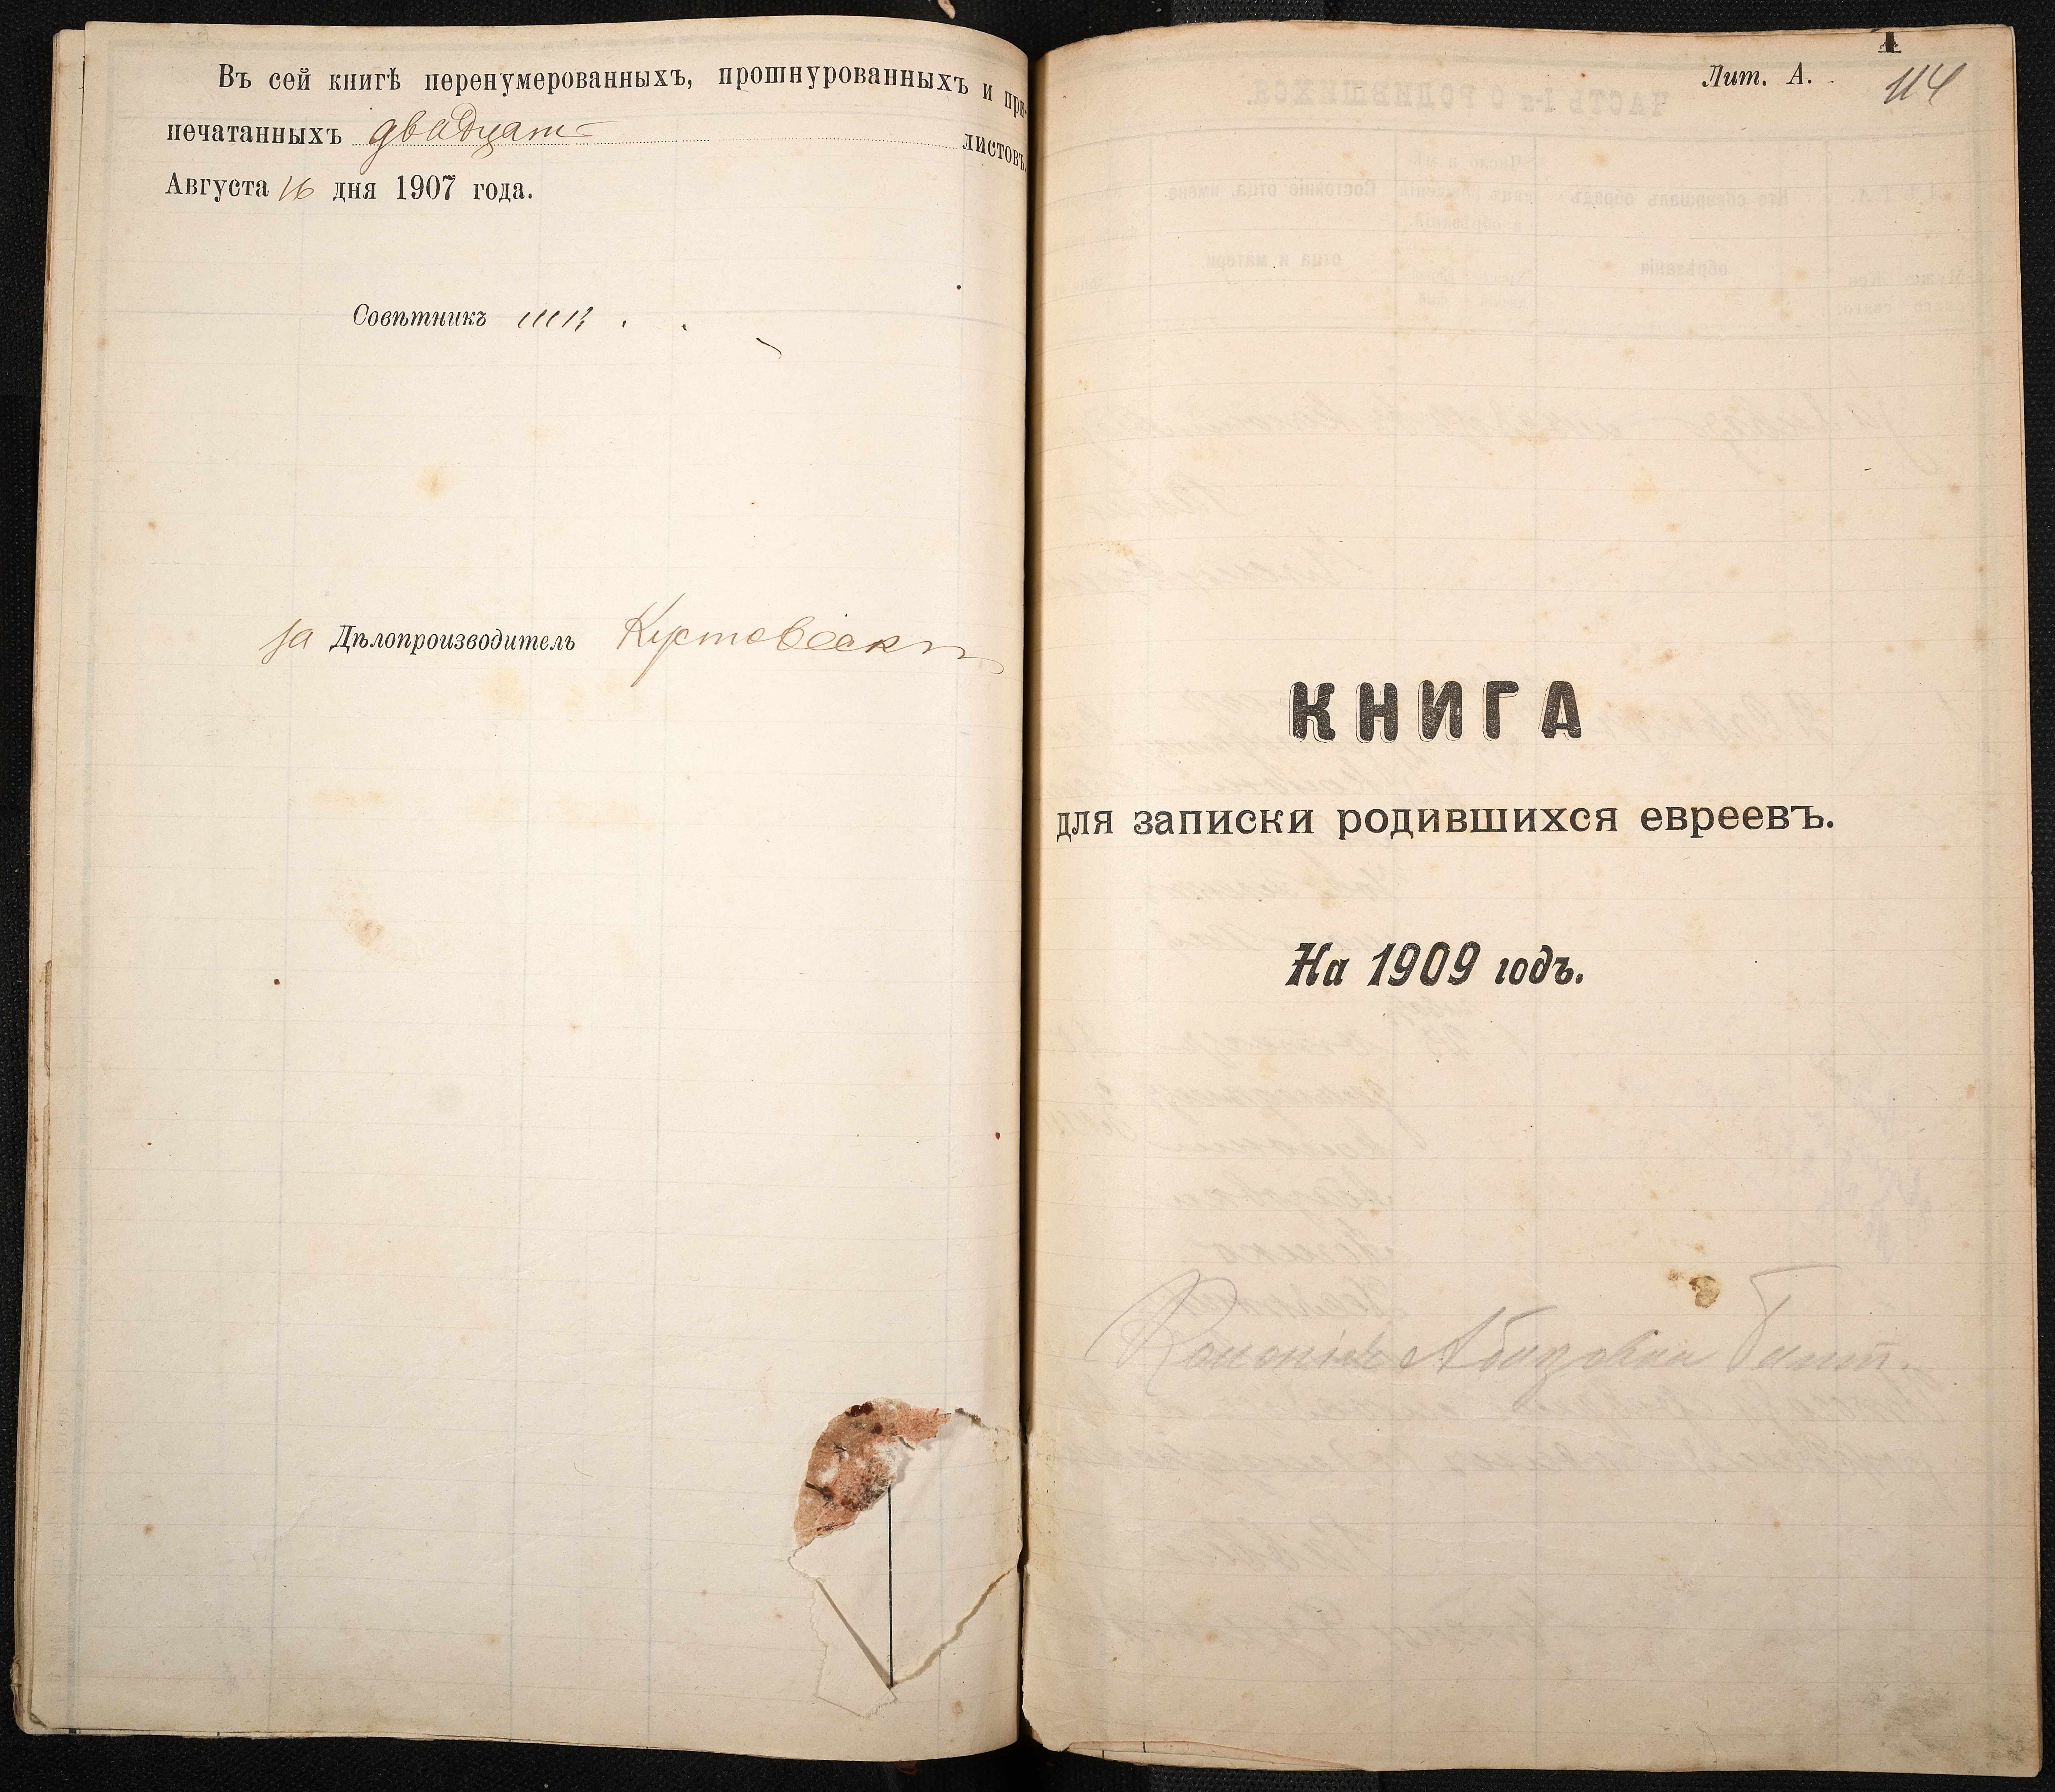 Въ сей книгѣ перенумерованныхъ, прошнурованныхъ и при-
печатанныхъ двадцать листовъ.
Августа 16 дня 1907 года.
Совѣтникъ
за Дѣлопроизводитель
1
Лит. А.
114
КНИГА
для записки родившихся евреевъ.
На 1909 годъ.
Колонія Абазовка